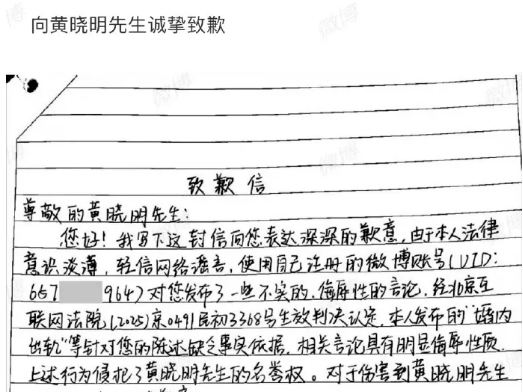 向黄晓明先生诚挚致歉
致歉信
尊敬的黄晓明先生:
您好!我写下这封信向您表达深深的歉意,由于本人法律
意识淡薄,轻信网络谣言,使用自己注册的微博账号(UID:
657 9647)对您发布了一些不实的、侮辱性的言论,经北京互
联网法院(2025)京0491民初3368号生效判决认定,本人发布的"婚内
出轨"等针对您的陈述缺乏事实依据,相关言论具有明显侮辱性质,
上述行为侵犯了黄晓明先生的名誉权。对于伤害到黄晓明先生